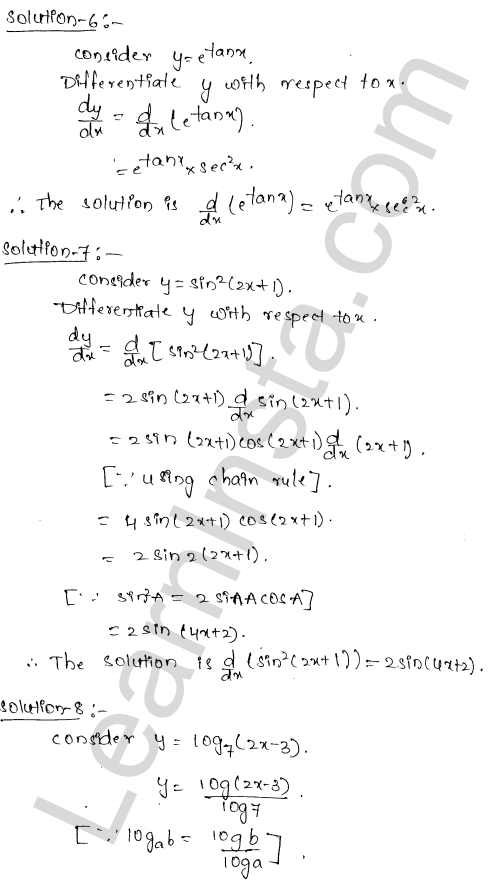 Solution-6:-
Consider y=e^tanx.
Differentiate y with respect to x.
dy/dx = d/dx (e^tanx).
=e^tanx × sec²x.
∴ The solution is d/dx (e^tanx) = e^tanx × sec²x.
Solution-7:-
Consider y=sin²(2x+1).
Differentiate y with respect to x.
dy/dx = d/dx [sin²(2x+1)].
=2sin(2x+1) d/dx sin(2x+1).
=2sin(2x+1)cos(2x+1) d/dx (2x+1).
[∵ using chain rule].
= 4sin(2x+1) cos(2x+1).
= 2sin2(2x+1).
[∵ sin²A = 2sinAAcosA]
=2sin(4x+2).
∴ The solution is d/dx (sin²(2x+1))=2sin(4x+2).
Solution-8:-
Consider y = log₇(2x-3).
y= log(2x-3)/log7.
[∵ logₐb = logb/loga].
LearnInsta.com